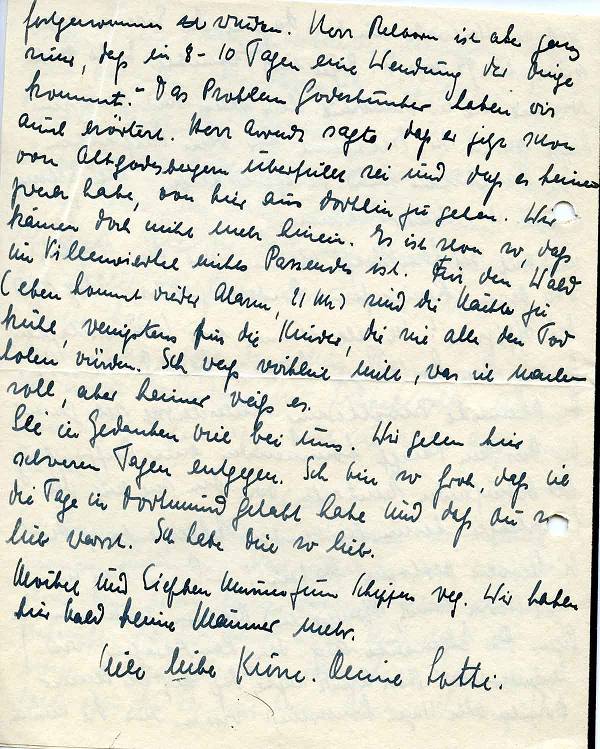 fortgenommen zu werden. Herr Relborn ist aber ganz
sicher, daß in 8-10 Tagen eine Wendung der Dinge
kommt." Das Problem Godesbunker haben wir
auch erörtert. Herr Arends sagte, daß er jetzt schon
von Altgodesbergern überfüllt sei und daß es keinen
Zweck habe, von hier aus dorthin zu gehen. Wir
kämen doch nicht mehr hinein. Es ist schon so, daß
im Villenviertel nichts Passendes ist. Für den Wald
(eben kommt wieder Alarm, 21 Uhr) sind die Nächte zu
kühl, wenigstens für die Kinder, die sich alle den Tod
holen würden. Ich weiß wirklich nicht, was ich machen
soll, aber keiner weiß es.
Sei in Gedanken viel bei uns. Wir gehen hier
schweren Tagen entgegen. Ich bin so froh, daß ich
die Tage in Dortmund gehabt habe und daß du so
lieb warst. Ich habe dich so lieb.
und müssen zum Schippen weg. Wir haben
hier bald keine Männer mehr.
Viele liebe Küsse. Deine Lotti.